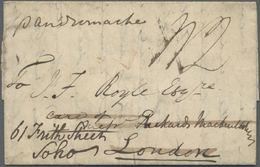 p andromache
N2
To J. F. Royle Esqre
care of
Richards Mackintosh
61 Frith Street
Soho London